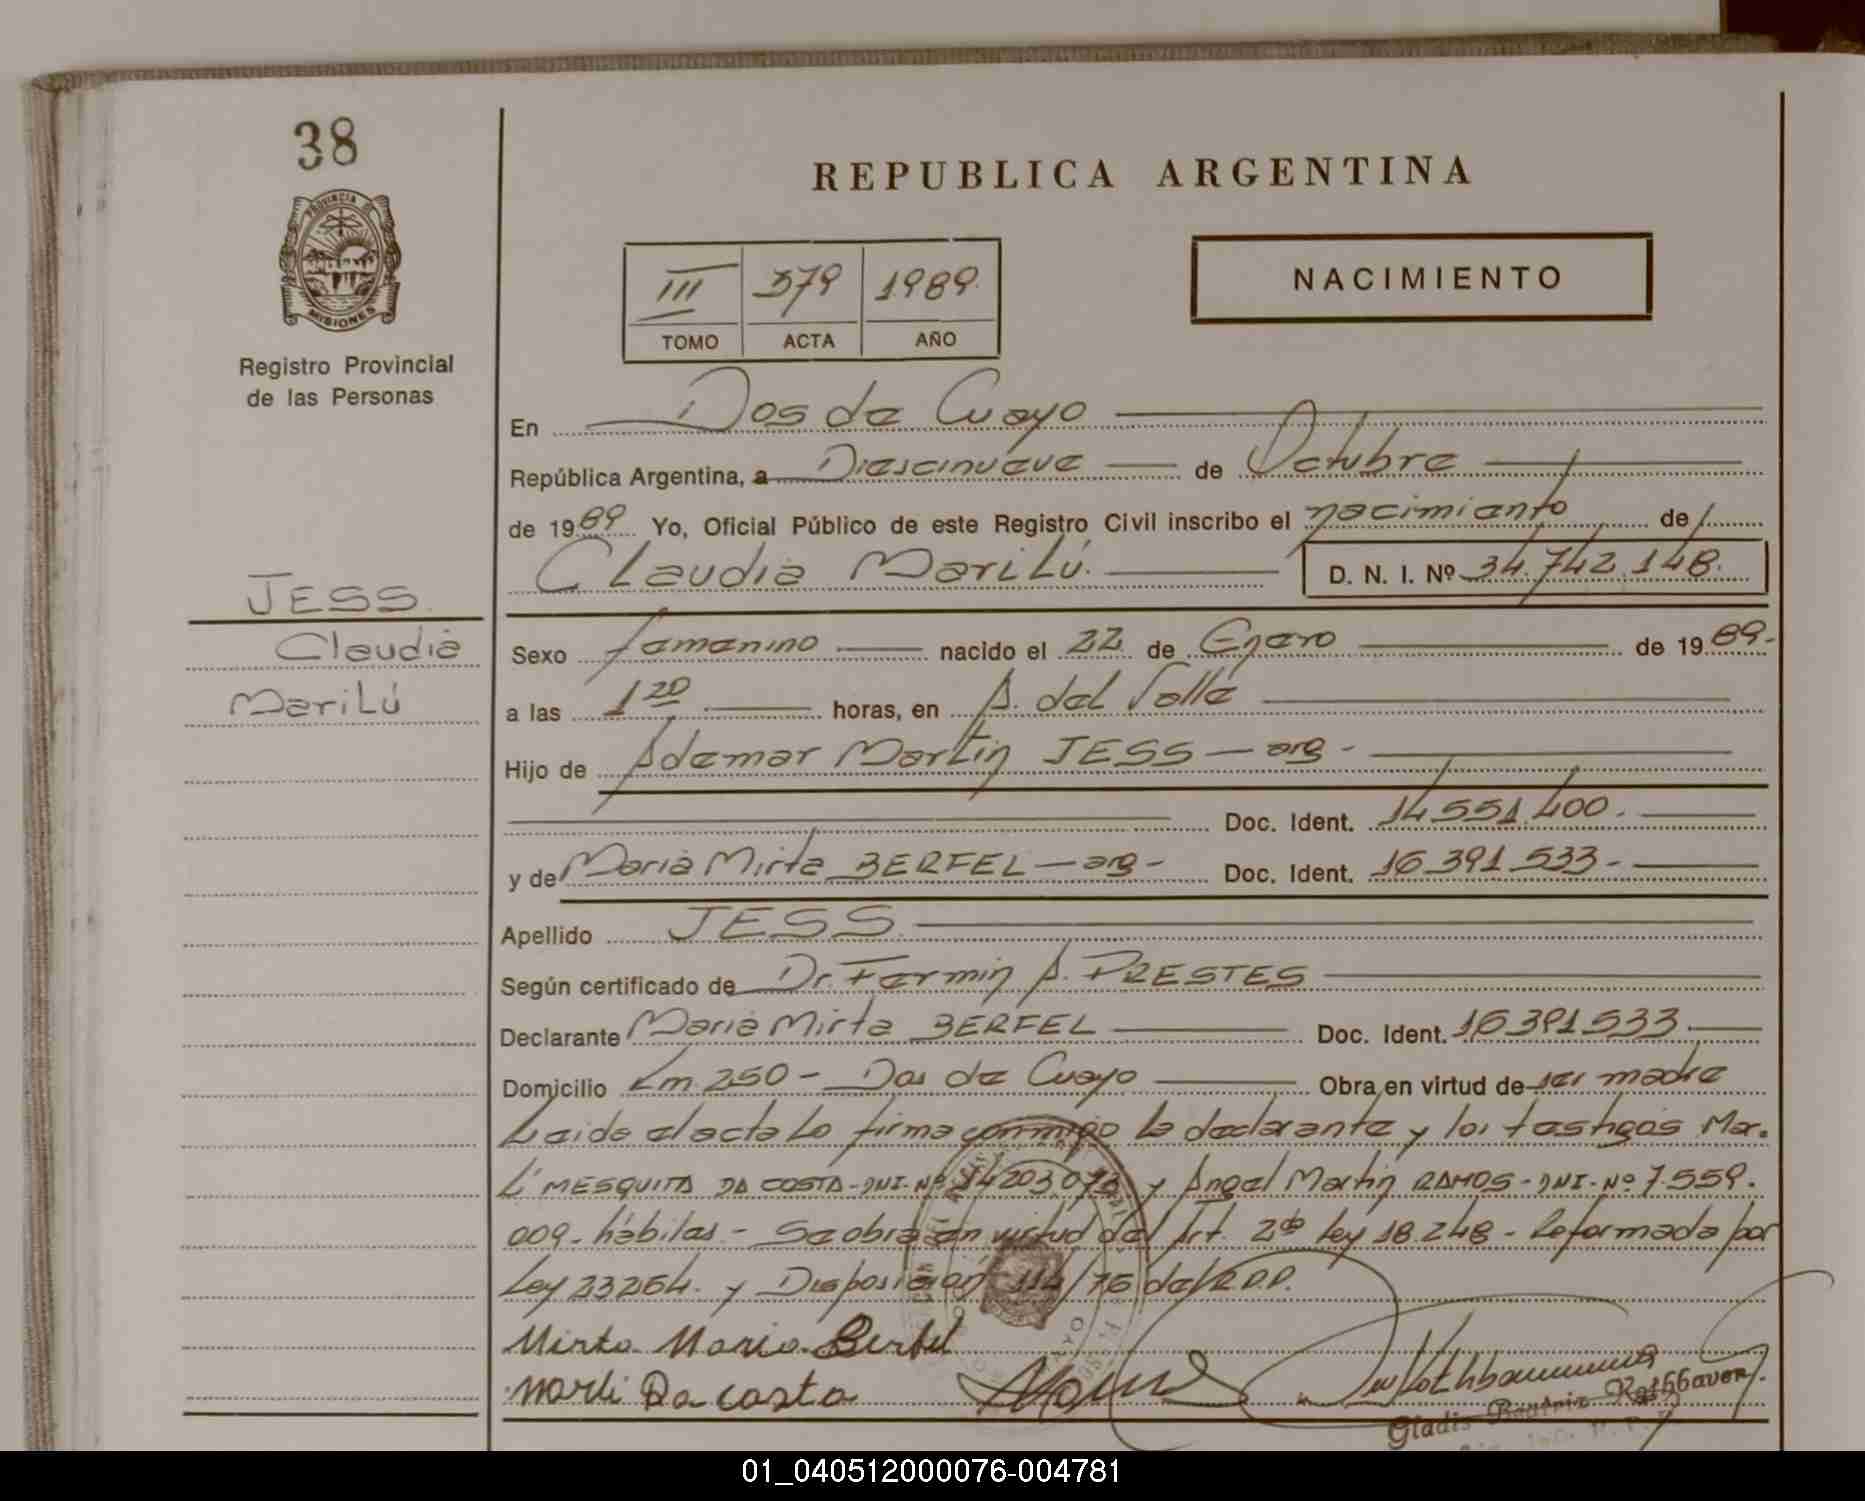 38
PROVINCIA DE
MISIONES
Registro Provincial
de las Personas
JESS
Claudia
Marilú
REPUBLICA ARGENTINA
III 379 1989
TOMO ACTA AÑO
NACIMIENTO
En Dos de Cuayo
República Argentina, a Diescinueve de Octubre
de 1989 Yo, Oficial Público de este Registro Civil inscribo el nacimiento de
Claudia Marilú. D. N. I. Nº 34.742.148.
Sexo femenino nacido el 22 de Enero de 1989-
a las 1 20 horas, en A. del Valle
Hijo de Ademar Martin JESS - arg -
Doc. Ident. 14.551.400.
y de Maria Mirta BERFEL - arg - Doc. Ident. 16.391.533-
Apellido JESS
Según certificado de Dr. Fermin A. PRESTES
Declarante Maria Mirta BERFEL Doc. Ident. 16.391.533
Domicilio Km. 250 - Dos de Cuayo Obra en virtud de ser madre
Leida el acta lo firma conmigo la declarante y los testigos Mar.
li MESQUITA DA COSTA - DNI. Nº 14.203.073 y Angel Martin RAMOS - DNI - Nº 7.559.
009 - hábiles - Se obra en virtud del Art. 2do Ley 18.248 - Reformada por
Ley 23264. y Disposición 114/76 del R.P.P.
Mirta Maria Berfel
Marli Da costa
Gladis Beatriz Rothbauer
01_040512000076-004781